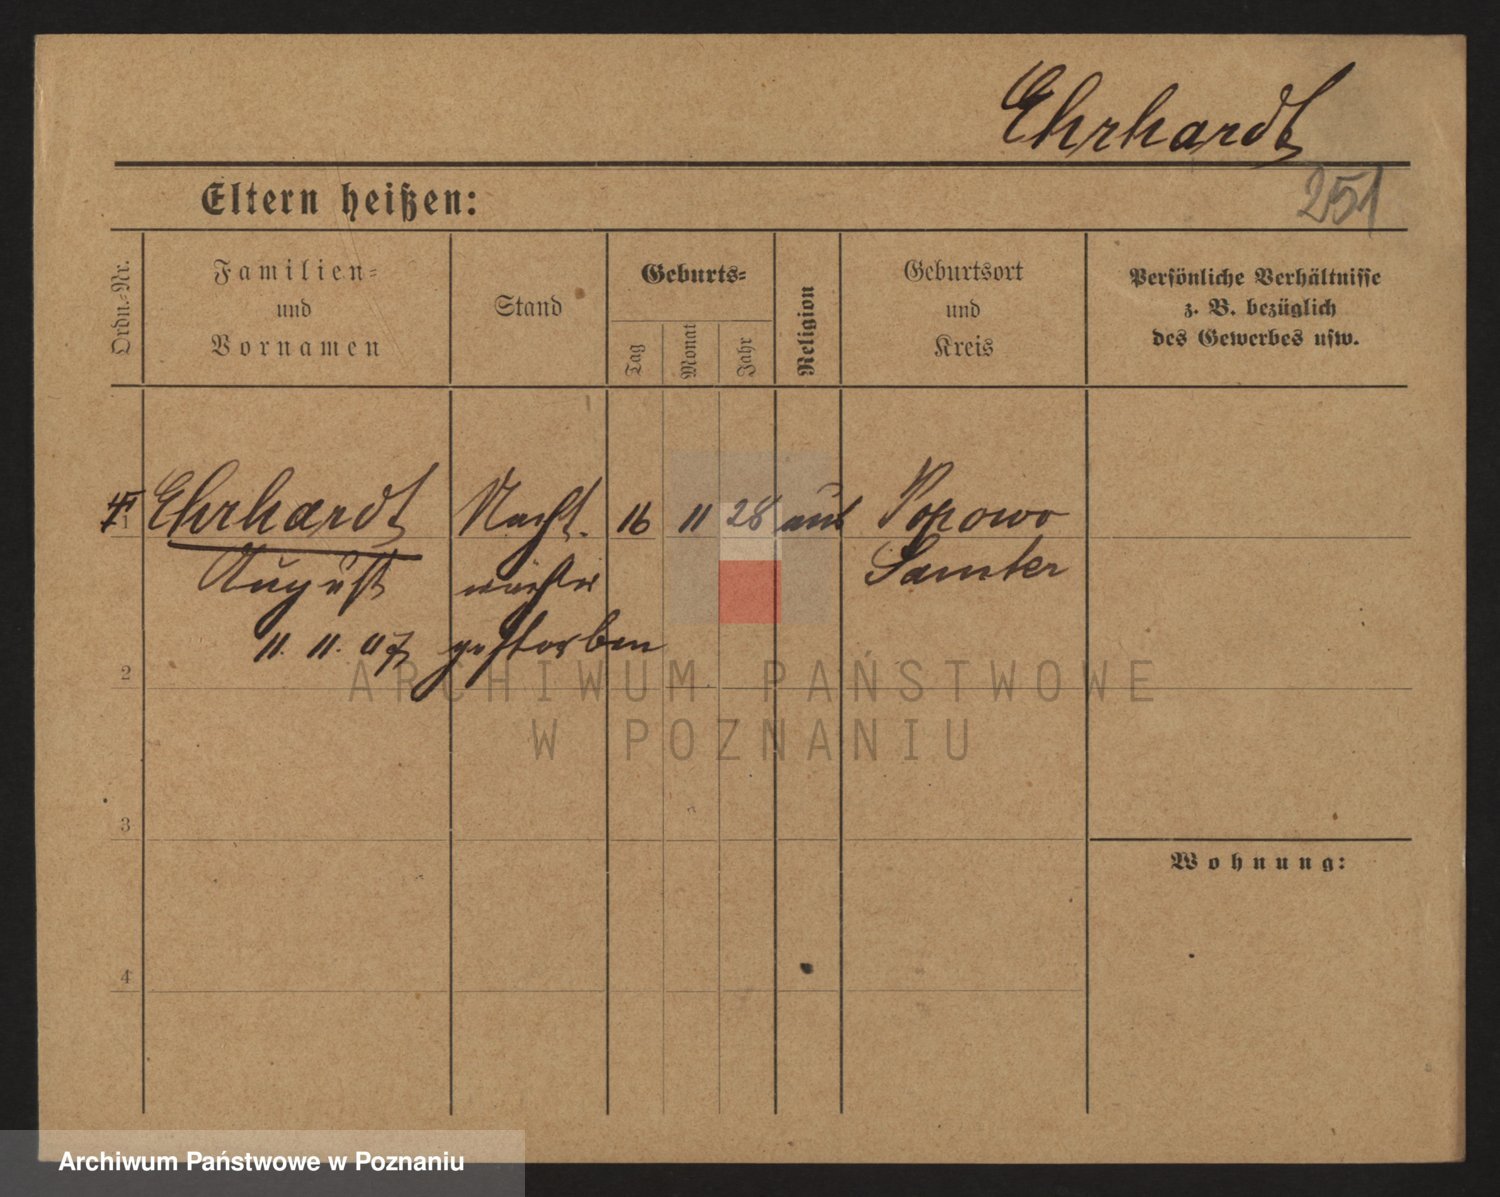 Ehrhardt
251
Eltern heißen:
Ordn.-Nr.
Familien-
und
Vornamen
Stand
Geburts-
Tag
Monat
Jahr
Religion
Geburtsort
und
Kreis
Persönliche Verhältnisse
z. B. bezüglich
des Gewerbes usw.
1 Ehrhardt Nacht- 16 11 28 Popowo
August wächter Samter
11. 11. 07 gestorben
2
3
4
Wohnung:
ARCHIWUM PAŃSTWOWE
W POZNANIU
Archiwum Państwowe w Poznaniu